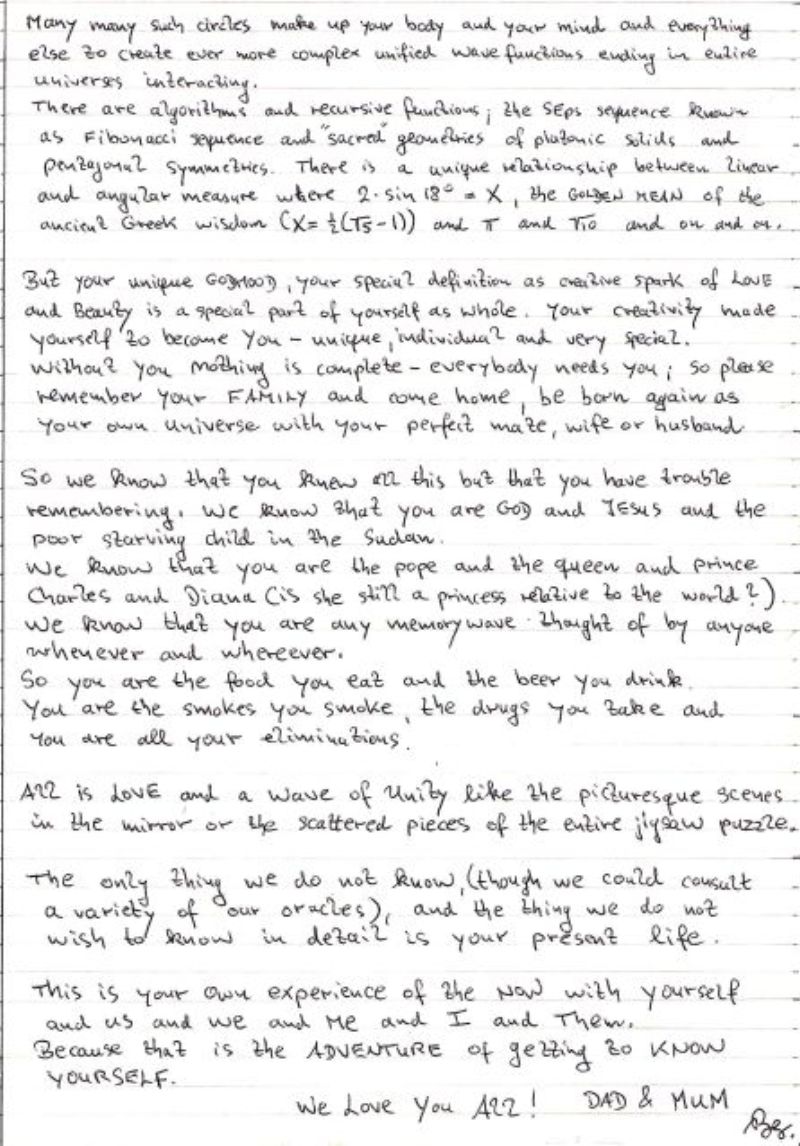 Many many such circles make up your body and your mind and everything
else to create ever more complex unified wave functions ending in entire
universes interacting.
There are algorithms and recursive functions; the SEps sequence known
as Fibonacci sequence and "sacred" geometries of platonic solids and
pentagonal symmetries. There is a unique relationship between linear
and angular measure where 2·sin 18° = X, the GOLDEN MEAN of the
ancient Greek wisdom (X= ½(√5-1)) and π and √10 and on and on.
But your unique GODHOOD, your special definition as creative spark of LOVE
and Beauty is a special part of yourself as whole. Your creativity made
yourself to become You - unique, individual and very special.
Without you nothing is complete - everybody needs you; so please
remember your FAMILY and come home, be born again as
your own universe with your perfect mate, wife or husband.
So we know that you knew all this but that you have trouble
remembering. We know that you are GOD and JESUS and the
poor starving child in the Sudan.
We know that you are the pope and the queen and prince
Charles and Diana (is she still a princess relative to the world?).
We know that you are any memorywave thought of by anyone
whenever and whereever.
So you are the food you eat and the beer you drink.
You are the smokes you smoke, the drugs you take and
You are all your eliminations.
All is LOVE and a wave of Unity like the picturesque scenes
in the mirror or the scattered pieces of the entire jigsaw puzzle.
The only thing we do not know, (though we could consult
a variety of our oracles), and the thing we do not
wish to know in detail is your present life.
This is your own experience of the NOW with yourself
and us and we and Me and I and Them.
Because that is the ADVENTURE of getting to KNOW
YOURSELF.
We Love You All! DAD & MUM